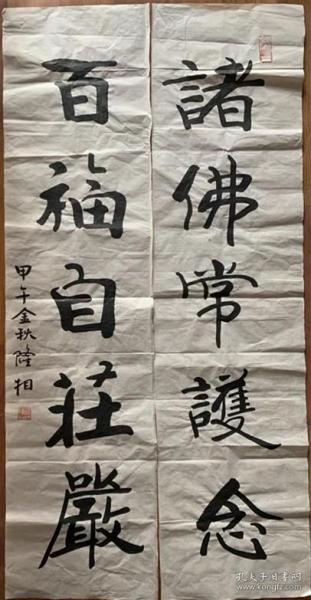 諸佛常護念
百福自莊嚴
甲午金秋隆相
孔夫子旧书网
www.kongfz.com